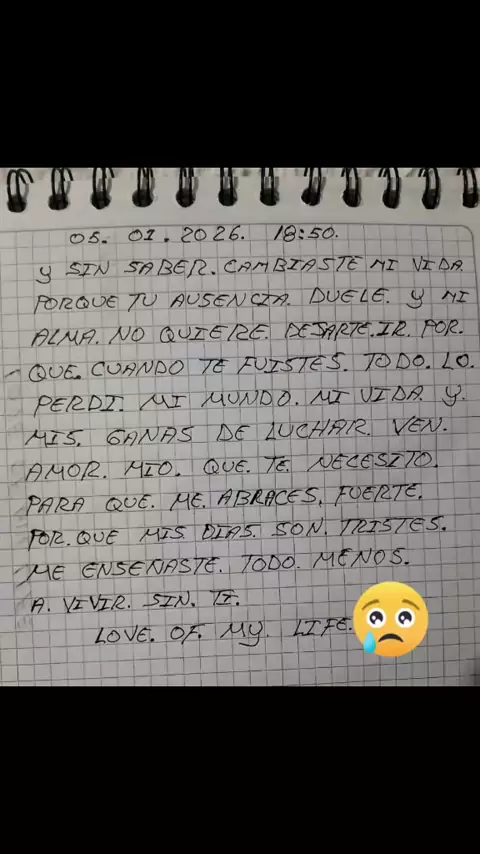 05. 01. 2026. 18:50.
Y SIN SABER. CAMBIASTE MI VIDA.
PORQUE TU AUSENCIA. DUELE. Y MI
ALMA. NO QUIERE. DEJARTE. IR. POR.
QUE. CUANDO TE FUISTES. TODO. LO.
PERDI. MI MUNDO. MI VIDA. Y.
MIS. GANAS DE LUCHAR. VEN.
AMOR. MIO. QUE. TE. NECESITO.
PARA QUE. ME. ABRACES. FUERTE.
POR. QUE MIS. DIAS. SON. TRISTES.
ME ENSENASTE. TODO. MENOS.
A. VIVIR. SIN. TI.
LOVE. OF. MY. LIFE.